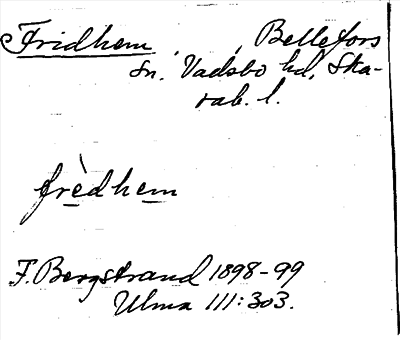 Fridhem, , Bellefors
sn, Vadsbo hd, Ska-
rab. l.
frèdhem
F. Bergstrand 1898-99
Ulma 111:303.